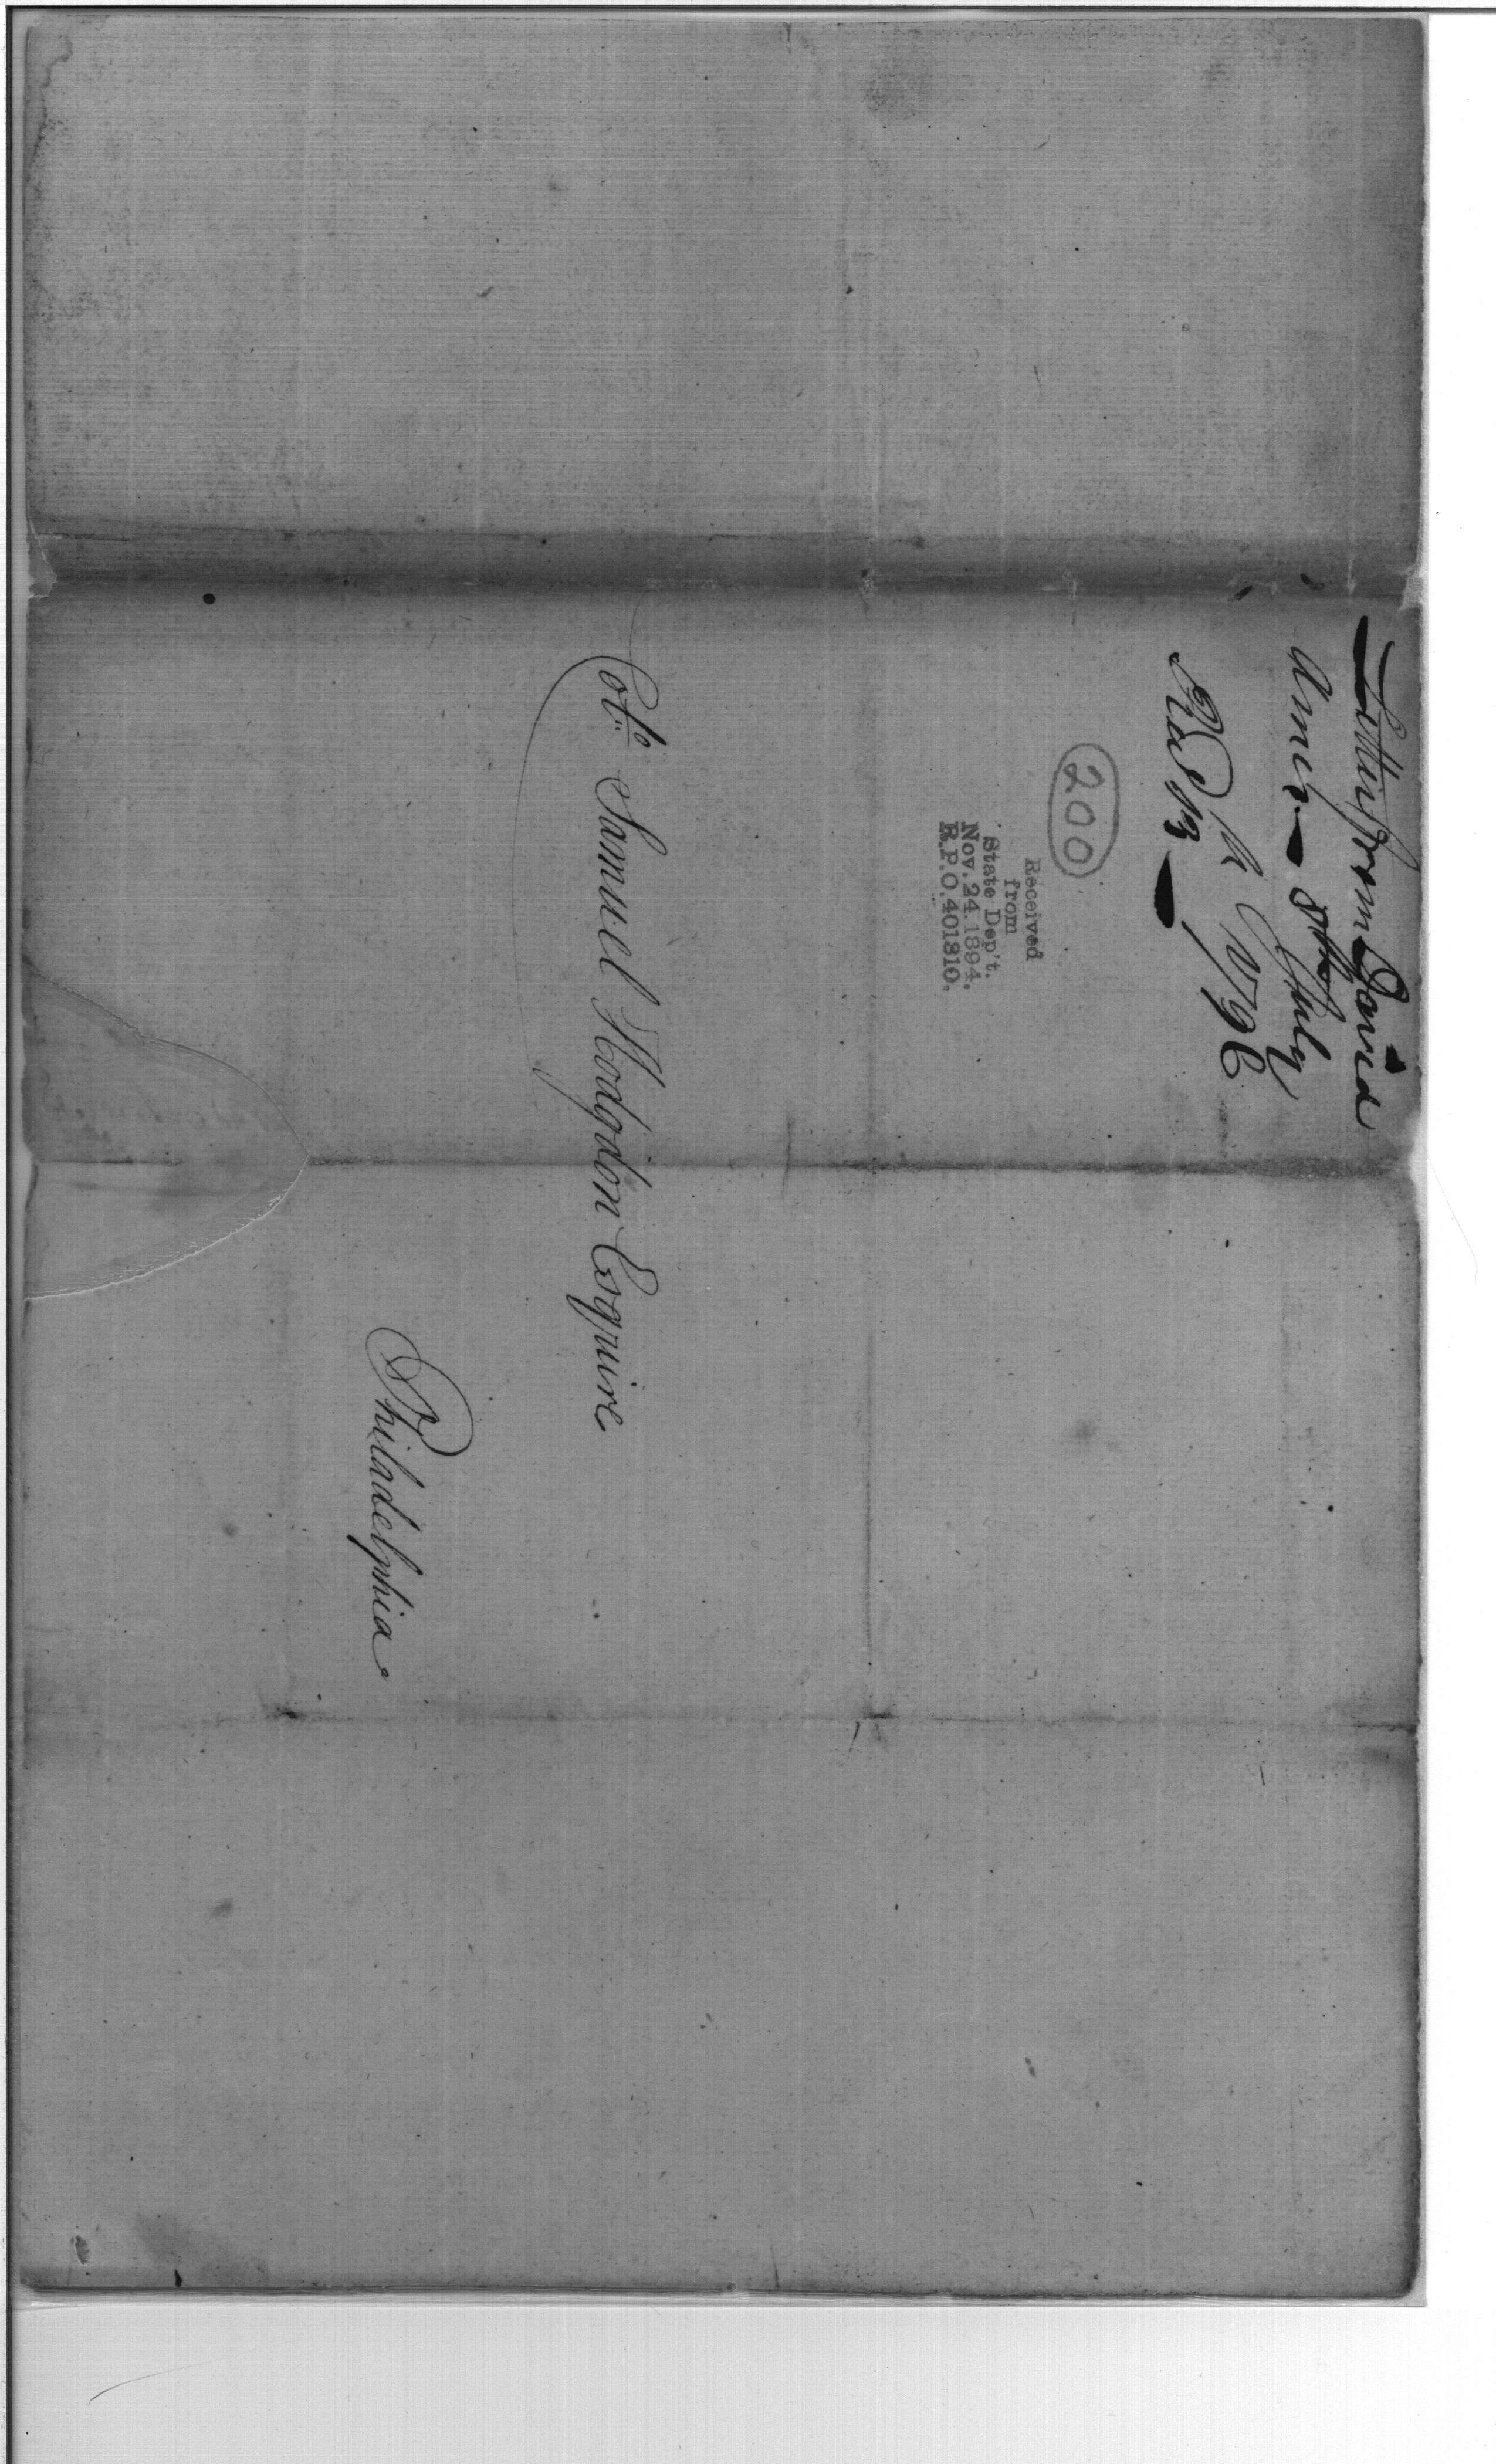 Letter from David
Ames — 8th July
1796
Rec'd 13 —
200
Received
from
State Dep't.
Nov. 24. 1894.
R.P.O. 401810.
Colo. Samuel Hodgdon Esquire
Philadelphia